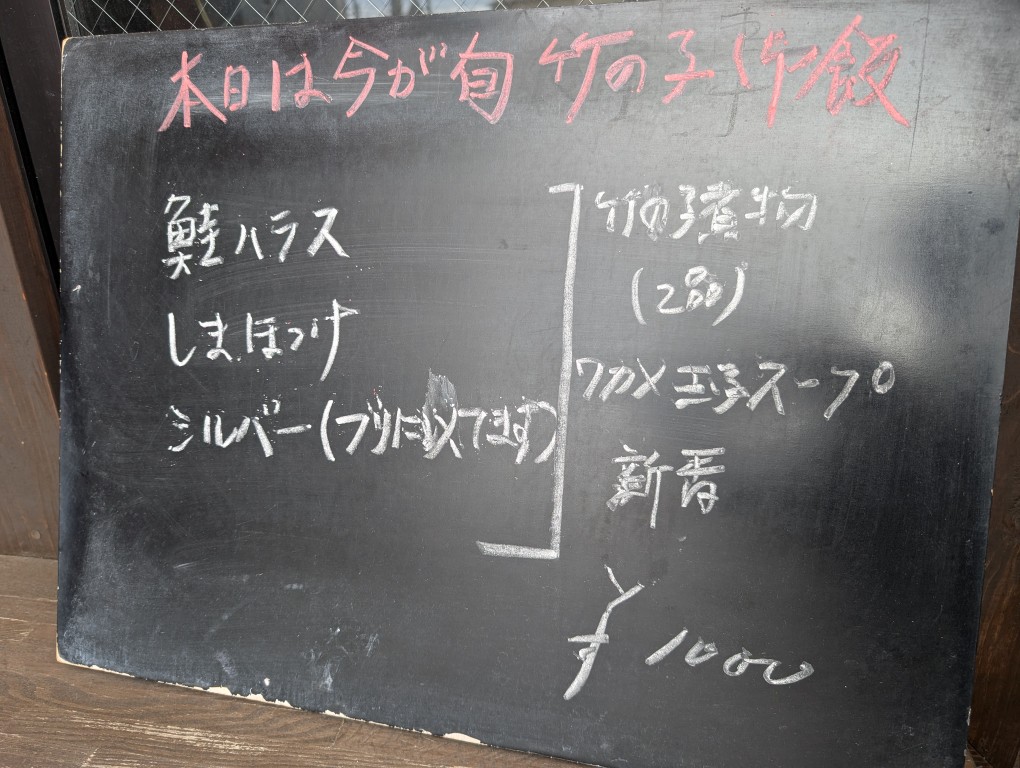 本日は今が旬 竹の子 飯
鮭ハラス
しまほっけ
シルバー(ブリに似てます)
竹の子煮物
(2品)
ワカメ玉子スープ
新香
¥1000